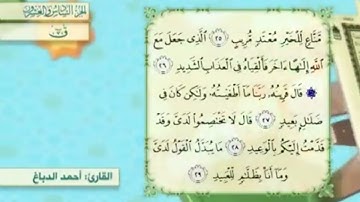 الجزء السادس والعشرون
ق
مَّنَّاعٍ لِّلْخَيْرِ مُعْتَدٍ مُّرِيبٍ ٢٥ الَّذِي جَعَلَ مَعَ
اللَّهِ إِلَٰهًا ءَاخَرَ فَأَلْقِيَاهُ فِي الْعَذَابِ الشَّدِيدِ ٢٦
قَالَ قَرِينُهُ رَبَّنَا مَا أَطْغَيْتُهُ وَلَٰكِن كَانَ فِي
ضَلَٰلٍ بَعِيدٍ ٢٧ قَالَ لَا تَخْتَصِمُوا لَدَيَّ وَقَدْ
قَدَّمْتُ إِلَيْكُم بِالْوَعِيدِ ٢٨ مَا يُبَدَّلُ الْقَوْلُ لَدَيَّ
وَمَا أَنَا بِظَلَّٰمٍ لِّلْعَبِيدِ ٢٩
القارئ: أحمد الدباغ